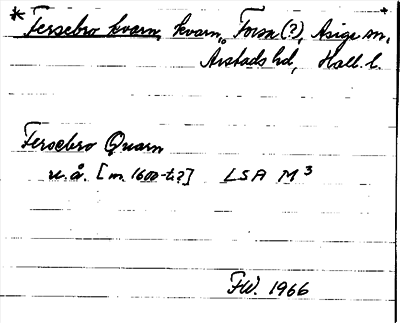 * Fersebro kvarn, kvarn, Forsa (?), Asige sn,
Årstads hd, Hall. l.
Fersebro Quarn
u.å. [m. 1600-t.?] LSA M 3
FW. 1966